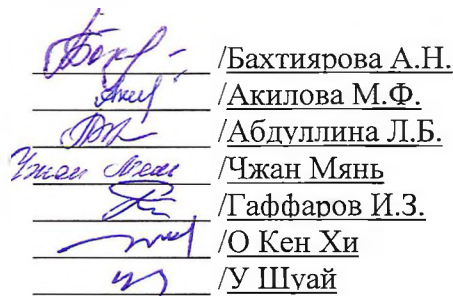 /Бахтиярова А.Н.
/Акилова М.Ф.
/Абдуллина Л.Б.
Чжан Мянь /Чжан Мянь
/Гаффаров И.З.
/О Кен Хи
/У Шуай